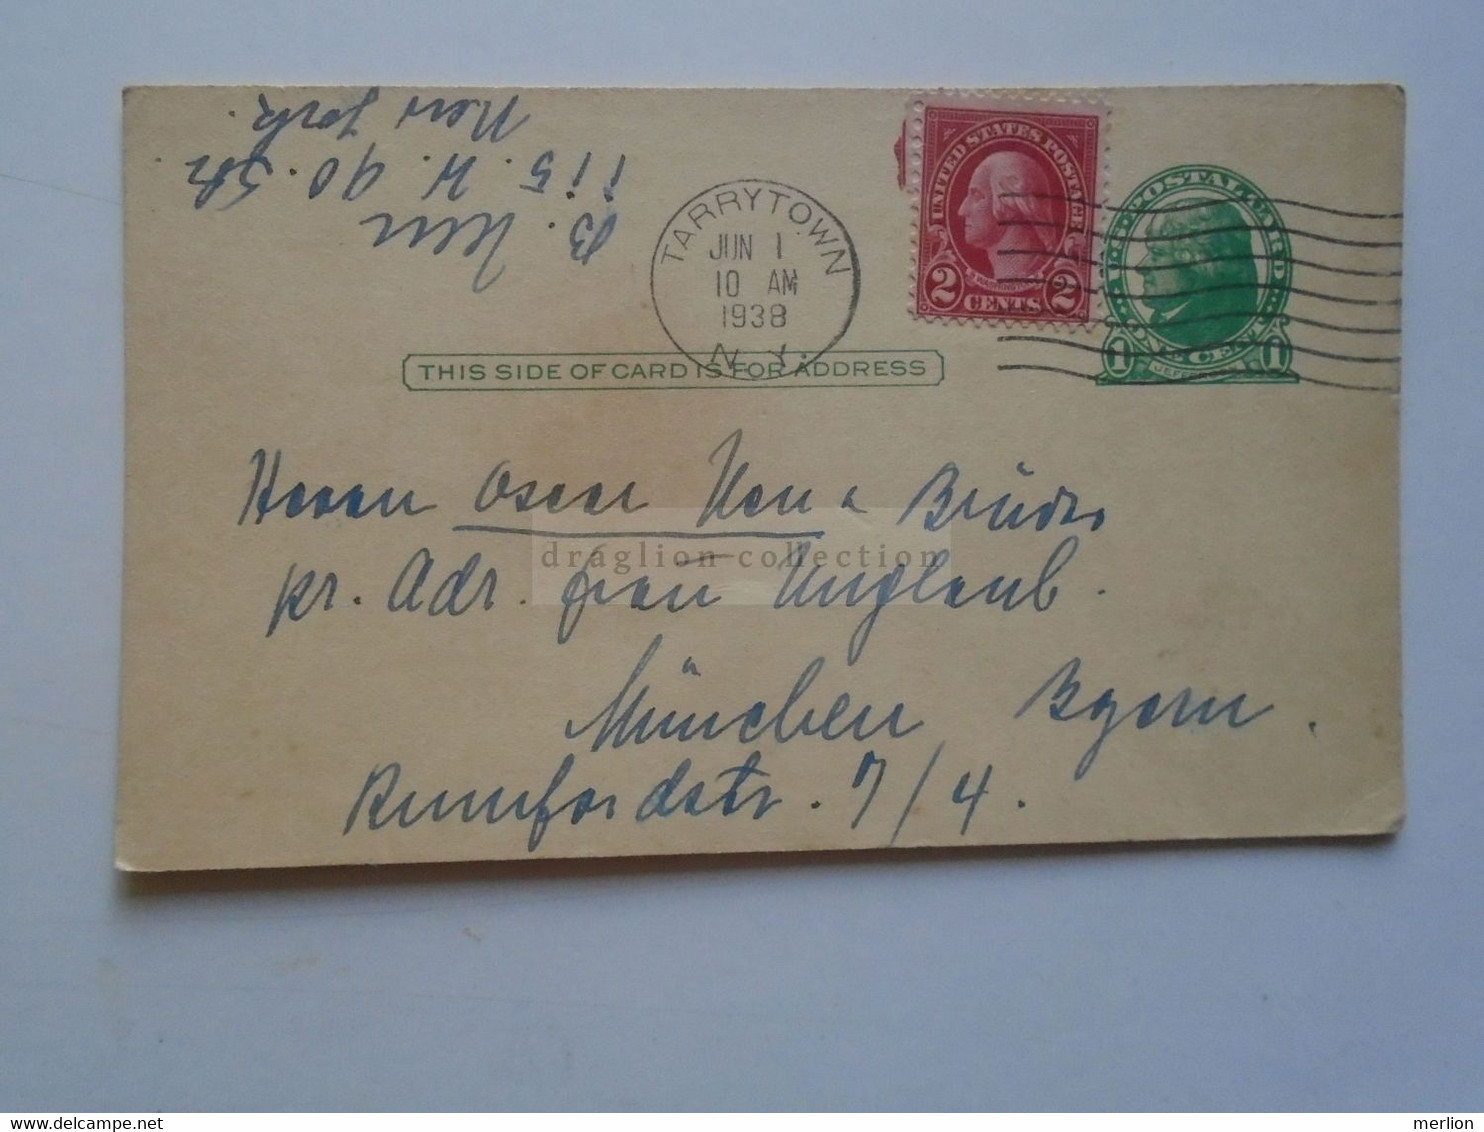 New York
115. W. 90. Str
B.
TARRYTOWN
JUN 1
10 AM
1938
N.Y.
UNITED STATES POSTAGE
WASHINGTON
2 CENTS 2
U.S. POSTAL CARD
1 ONE CENT 1
JEFFERSON
THIS SIDE OF CARD IS FOR ADDRESS
Herrn Oscar Neu u Brüder
pr. Adr. Frau Unglaub.
München Byern.
Rumfordstr. 7/4.
draglion-collection
merlion